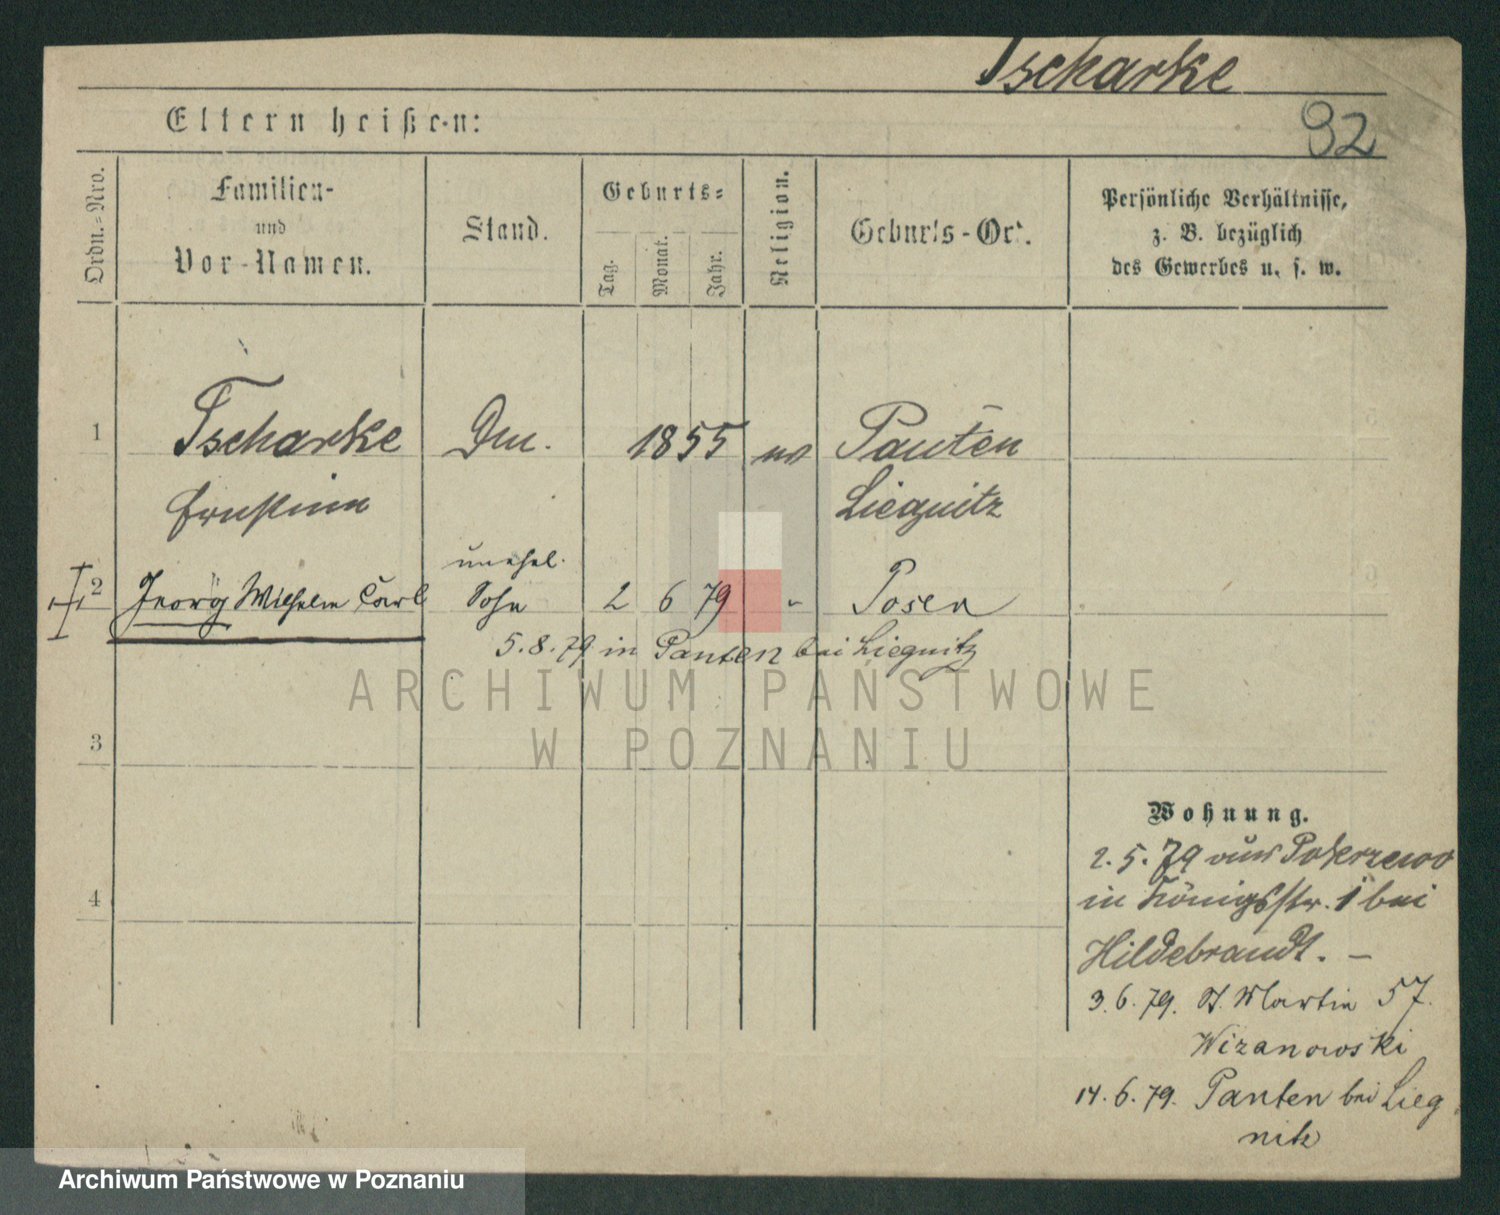 Tscharke
92
Eltern heißen:
Ordn.-Nro.
Familien-
und
Vor-Namen.
Stand.
Geburts-
Tag.
Monat.
Jahr.
Religion.
Geburts-Ort.
Persönliche Verhältnisse,
z. B. bezüglich
des Gewerbes u. s. w.
1 Tscharke 1855 Panten
Ernstine Liegnitz
unehel.
2 Georg Wilhelm Carl Sohn 2 6 79 " Posen
5. 8. 79 in Panten bei Liegnitz
ARCHIWUM PAŃSTWOWE
W POZNANIU
3
Wohnung.
2. 5. 79 aus Pokrzewo
4
in Königsstr. 1 bei
Hildebrandt. —
3. 6. 79. St. Martin 57.
Wizanowski
14. 6. 79. Panten bei Lieg
nitz
Archiwum Państwowe w Poznaniu